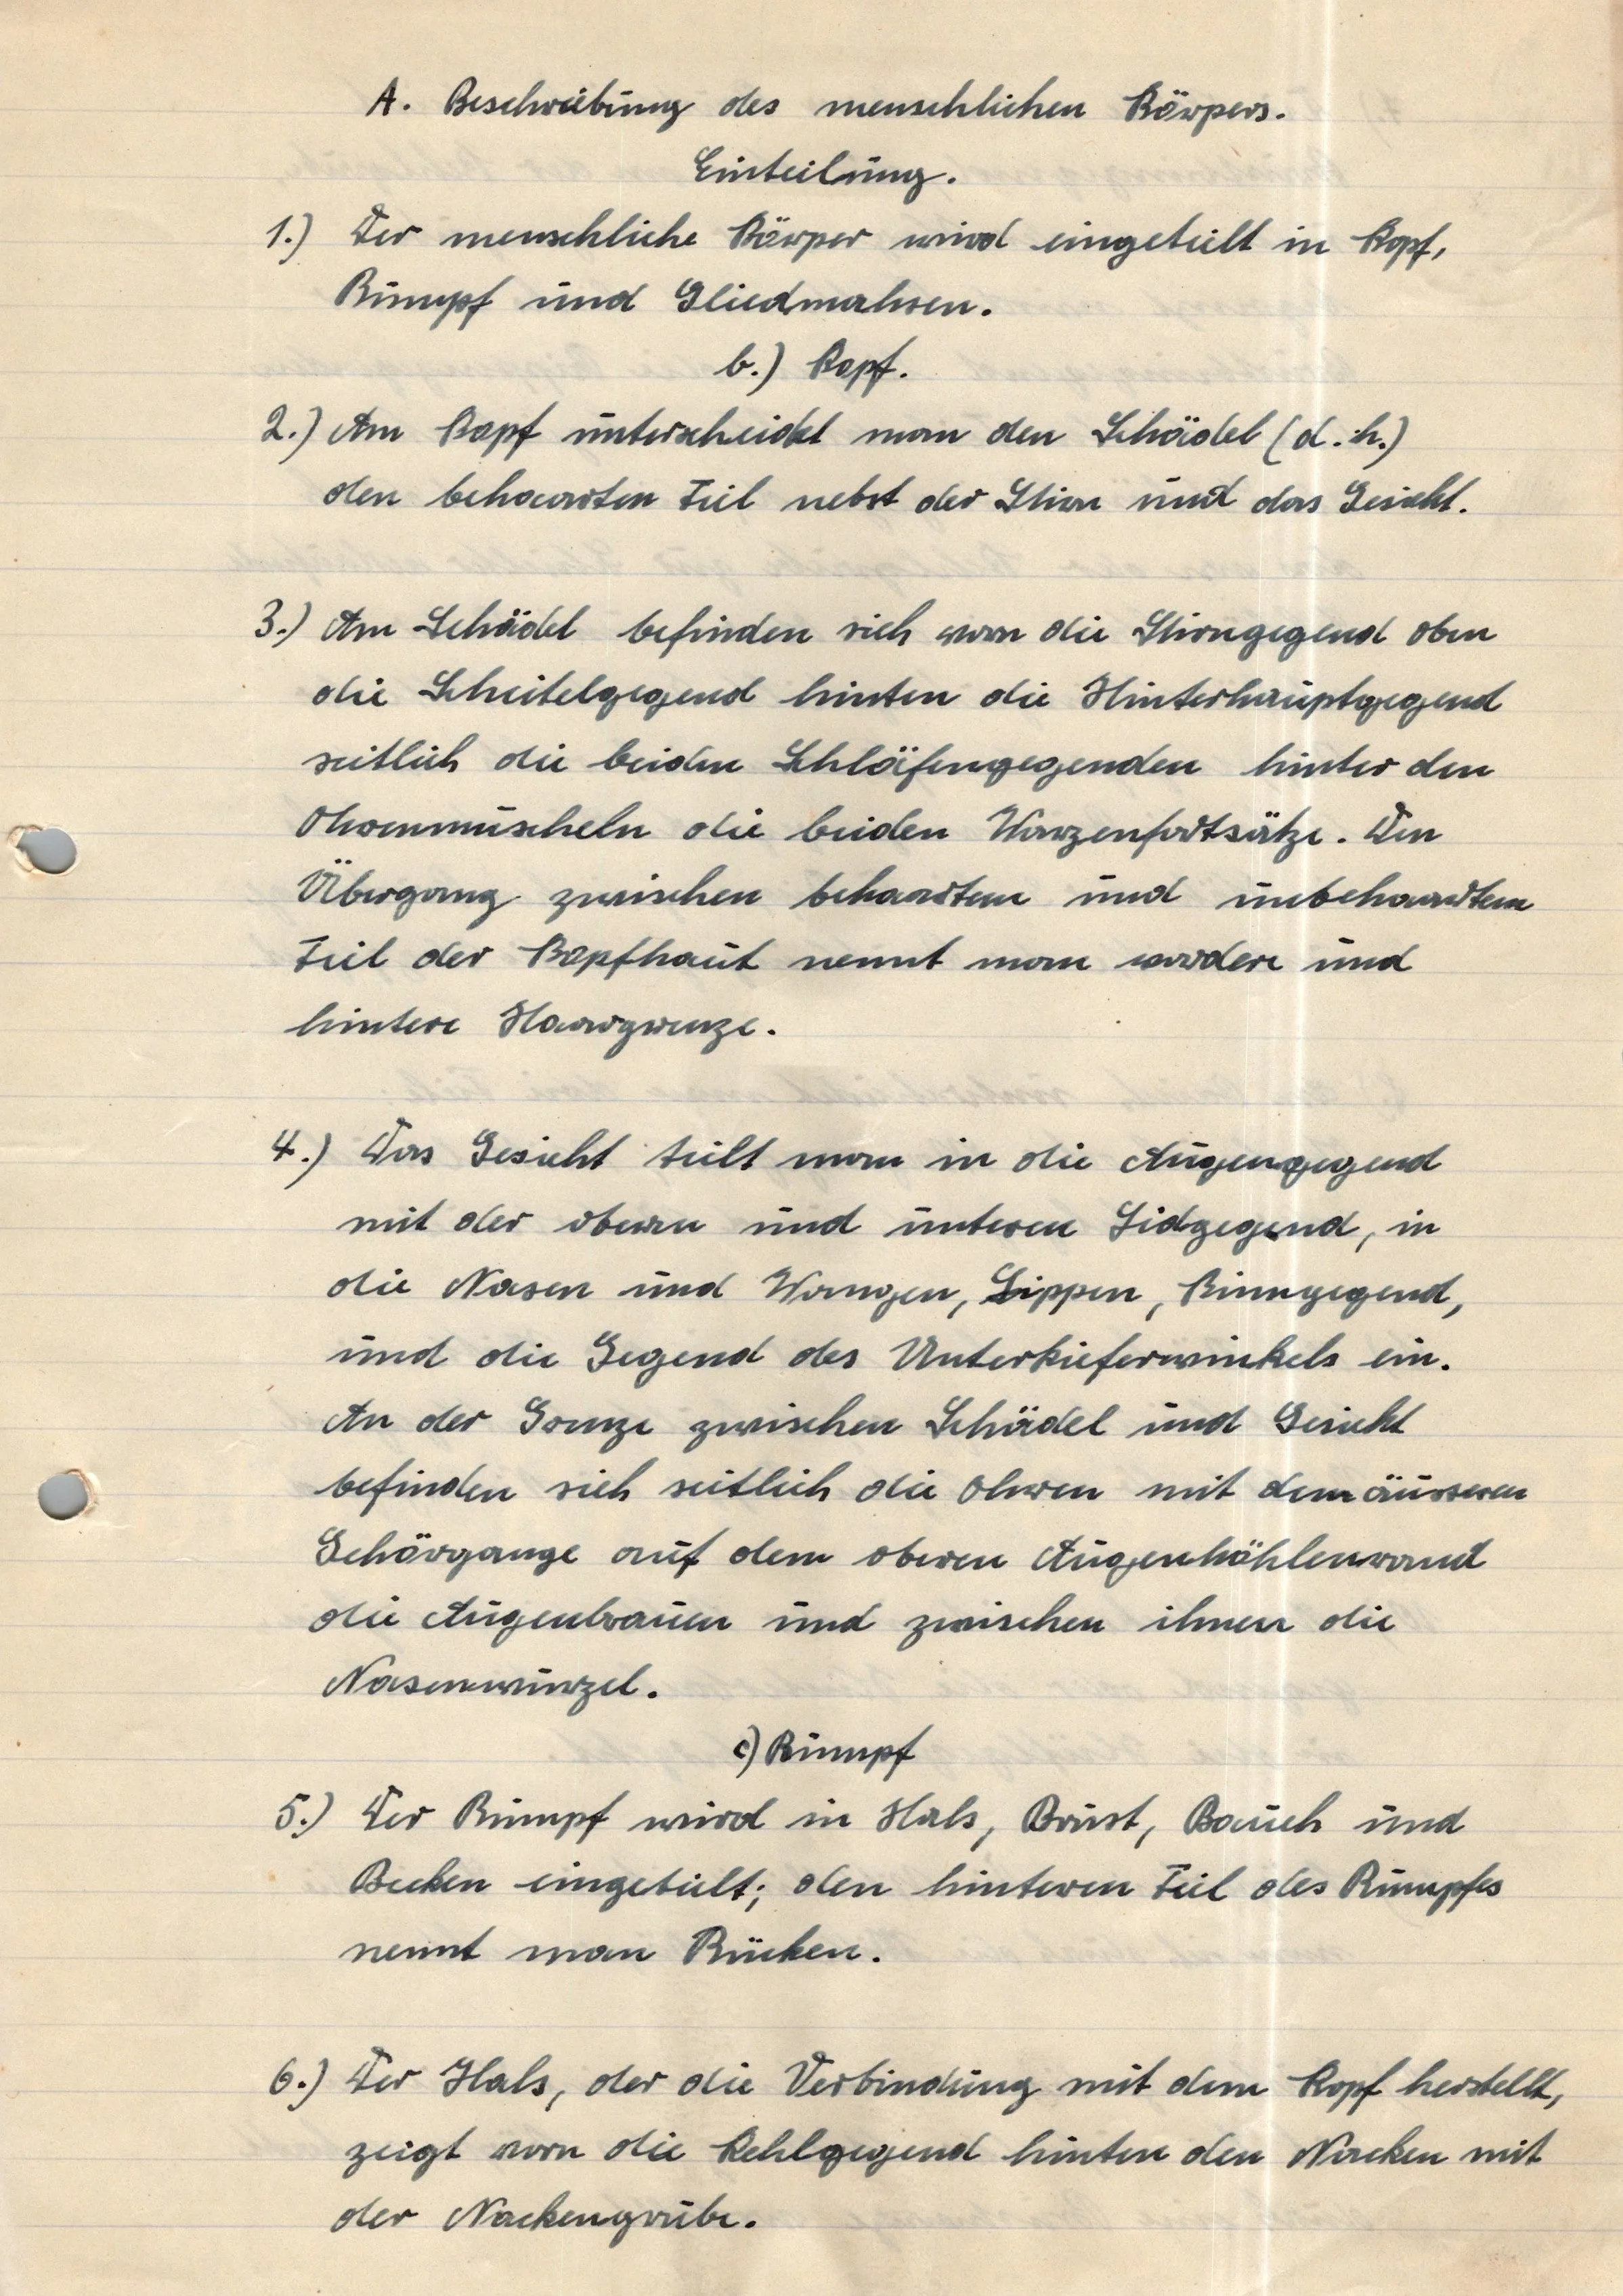 A. Beschreibung des menschlichen Körpers.
Einteilung.
1.) Der menschliche Körper wird eingeteilt in Kopf,
Rumpf und Gliedmahsen.
b.) Kopf.
2.) Am Kopf unterscheidet man den Schädel (d.h.)
den behaarten Teil nebst der Stirn und das Gesicht.
3.) Am Schädel befinden sich vorn die Stirngegend oben
die Scheitelgegend hinten die Hinterhauptgegend
seitlich die beiden Schläfengegenden hinter den
Ohrenmuscheln die beiden Warzenfortsätze. Den
Übergang zwischen behaartem und unbehaartem
Teil der Kopfhaut nennt man vordere und
hintere Haargrenze.
4.) Das Gesicht teilt man in die Augengegend
mit der oberen und unteren Lidgegend, in
die Nasen und Wangen, Lippen, Kinngegend,
und die Gegend des Unterkieferwinkels ein.
An der Grenze zwischen Schädel und Gesicht
befinden sich seitlich die Ohren mit dem äusseren
Gehörgange auf dem oberen Augenhöhlenrand
die Augenbrauen und zwischen ihnen die
Nasenwurzel.
c) Rumpf
5.) Der Rumpf wird in Hals, Brust, Bauch und
Becken eingeteilt; den hinteren Teil des Rumpfes
nennt man Rücken.
6.) Der Hals, der die Verbindung mit dem Kopf herstellt,
zeigt vorn die Kehlgegend hinten den Nacken mit
der Nackengrube.